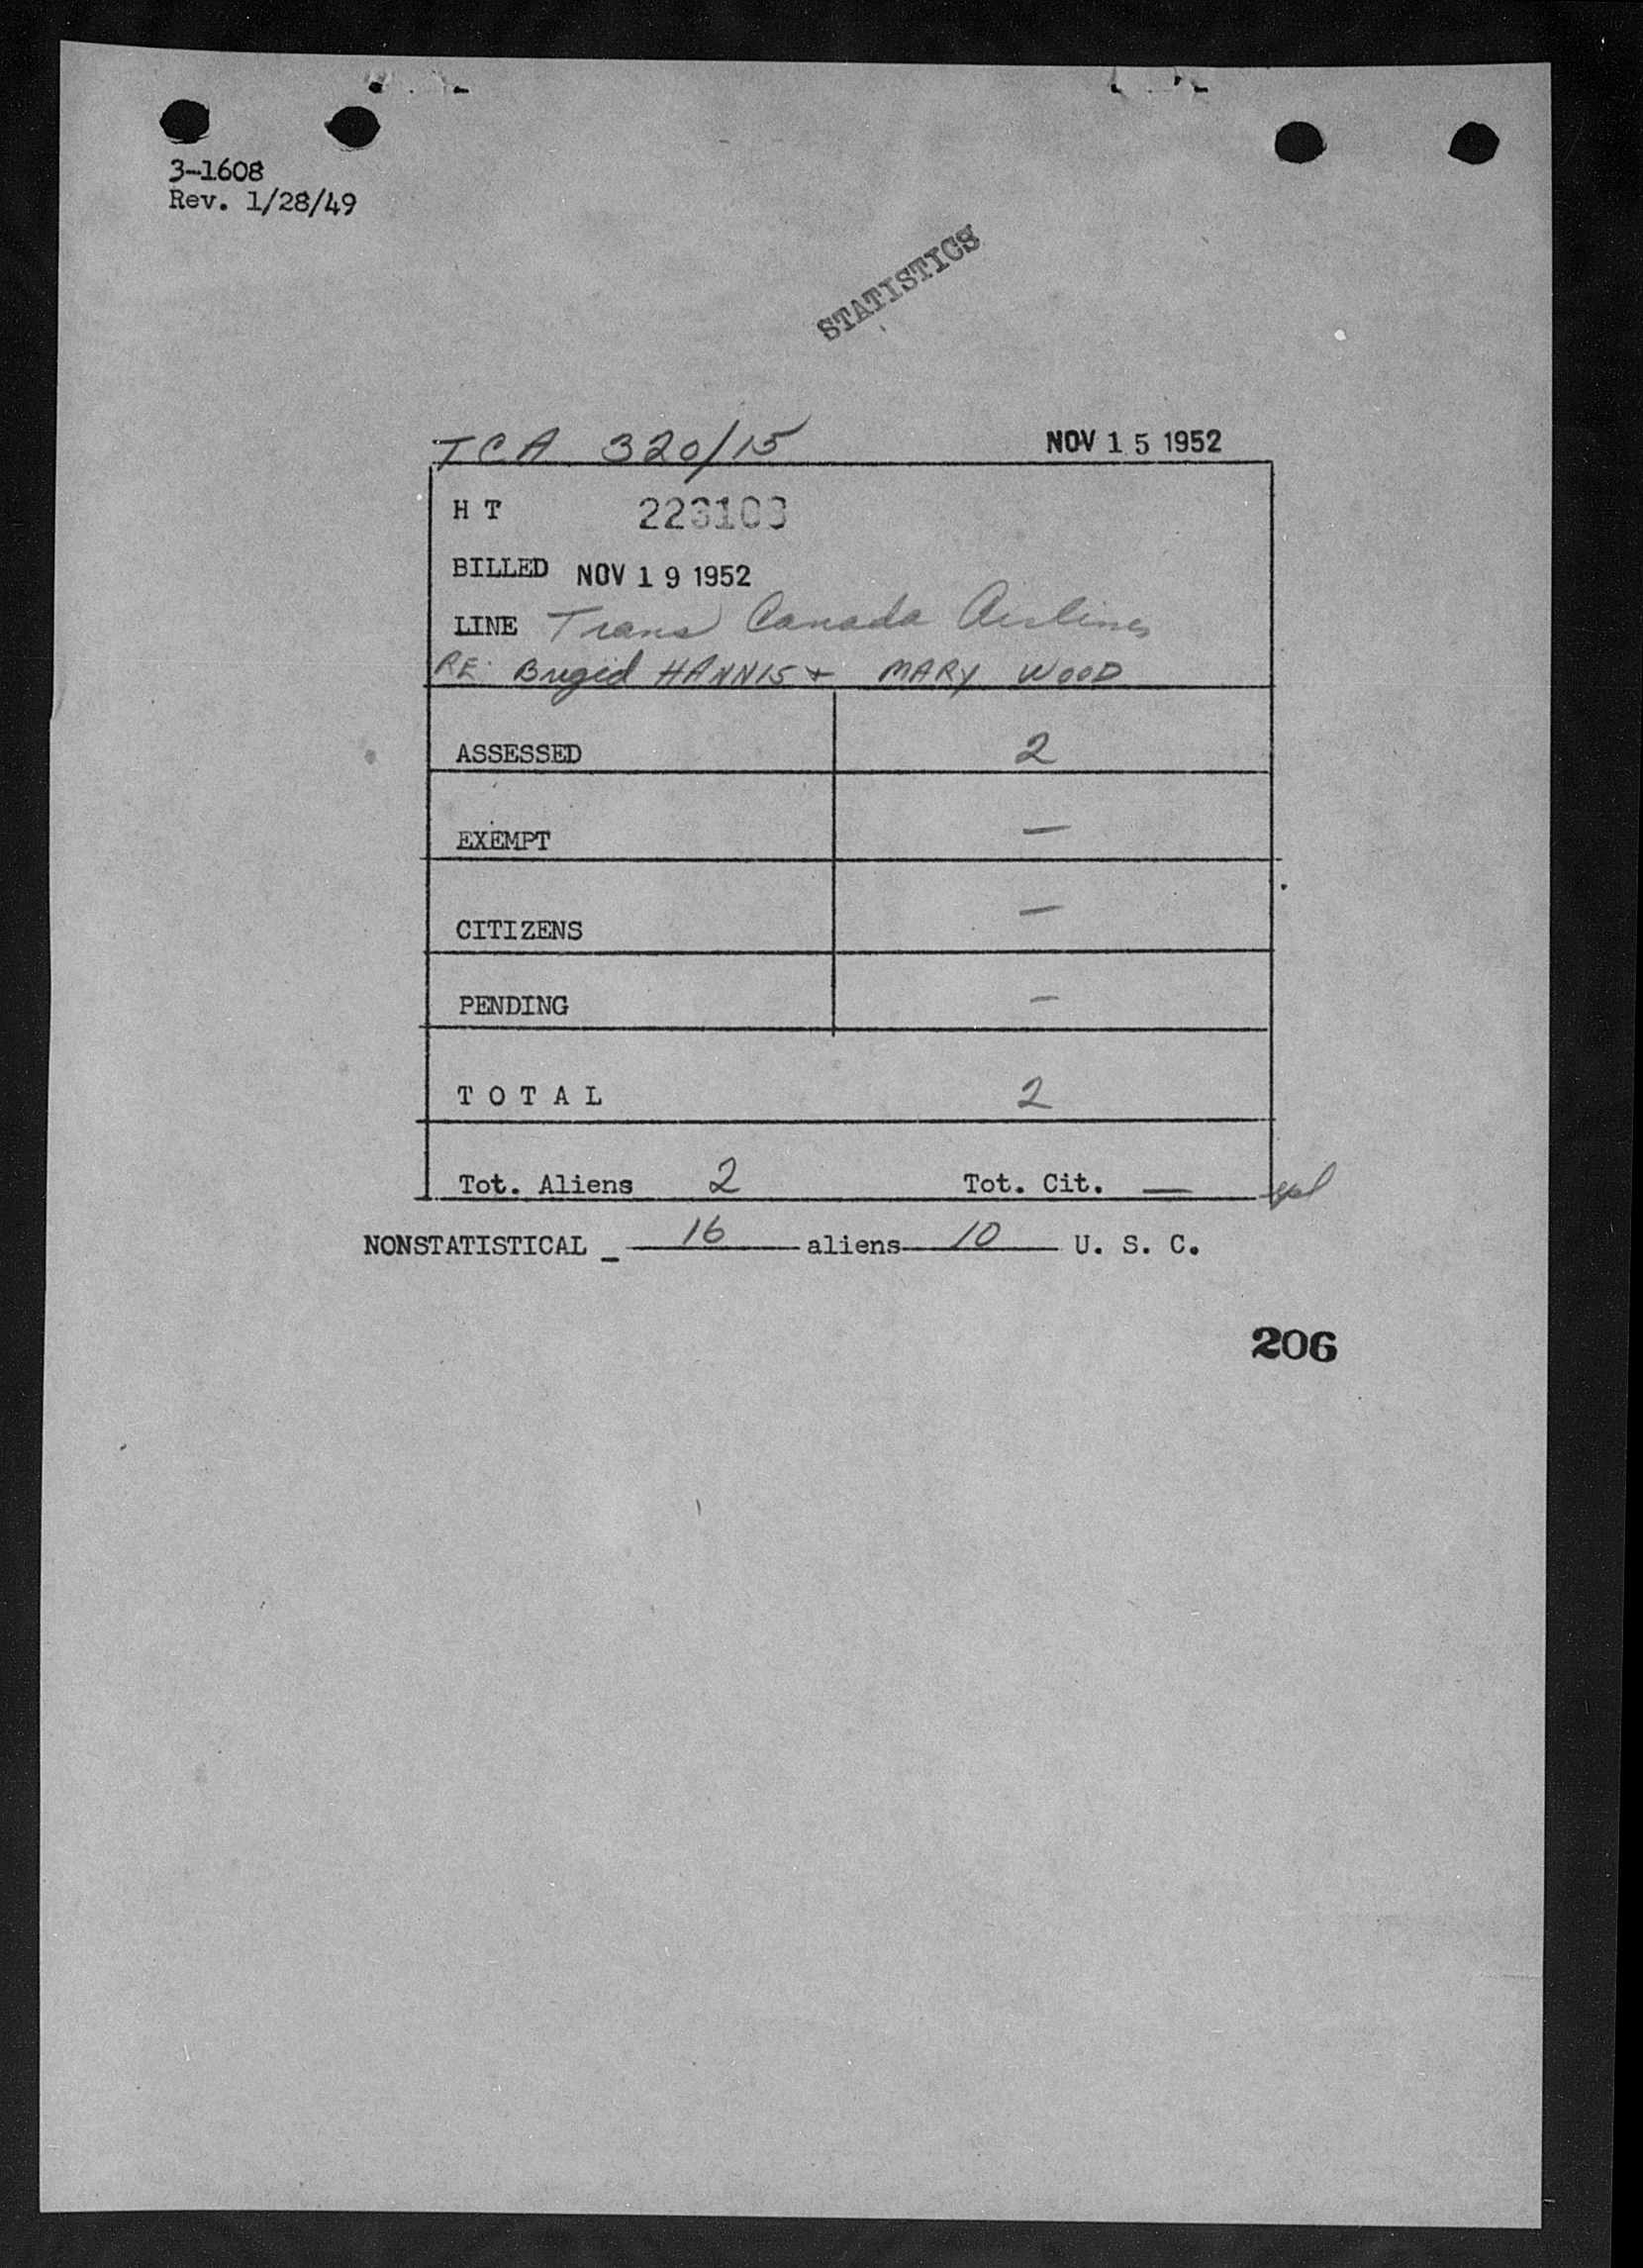 3-1608
Rev. 1/28/49
STATISTICS
TCA 320/15 NOV 15 1952
H T 223103
BILLED NOV 19 1952
LINE Trans Canada Airlines
RE: Brigid HANNIS + MARY WOOD
ASSESSED 2
EXEMPT —
CITIZENS —
PENDING —
T O T A L 2
Tot. Aliens 2 Tot. Cit. —
NONSTATISTICAL - 16 aliens 10 U. S. C.
206